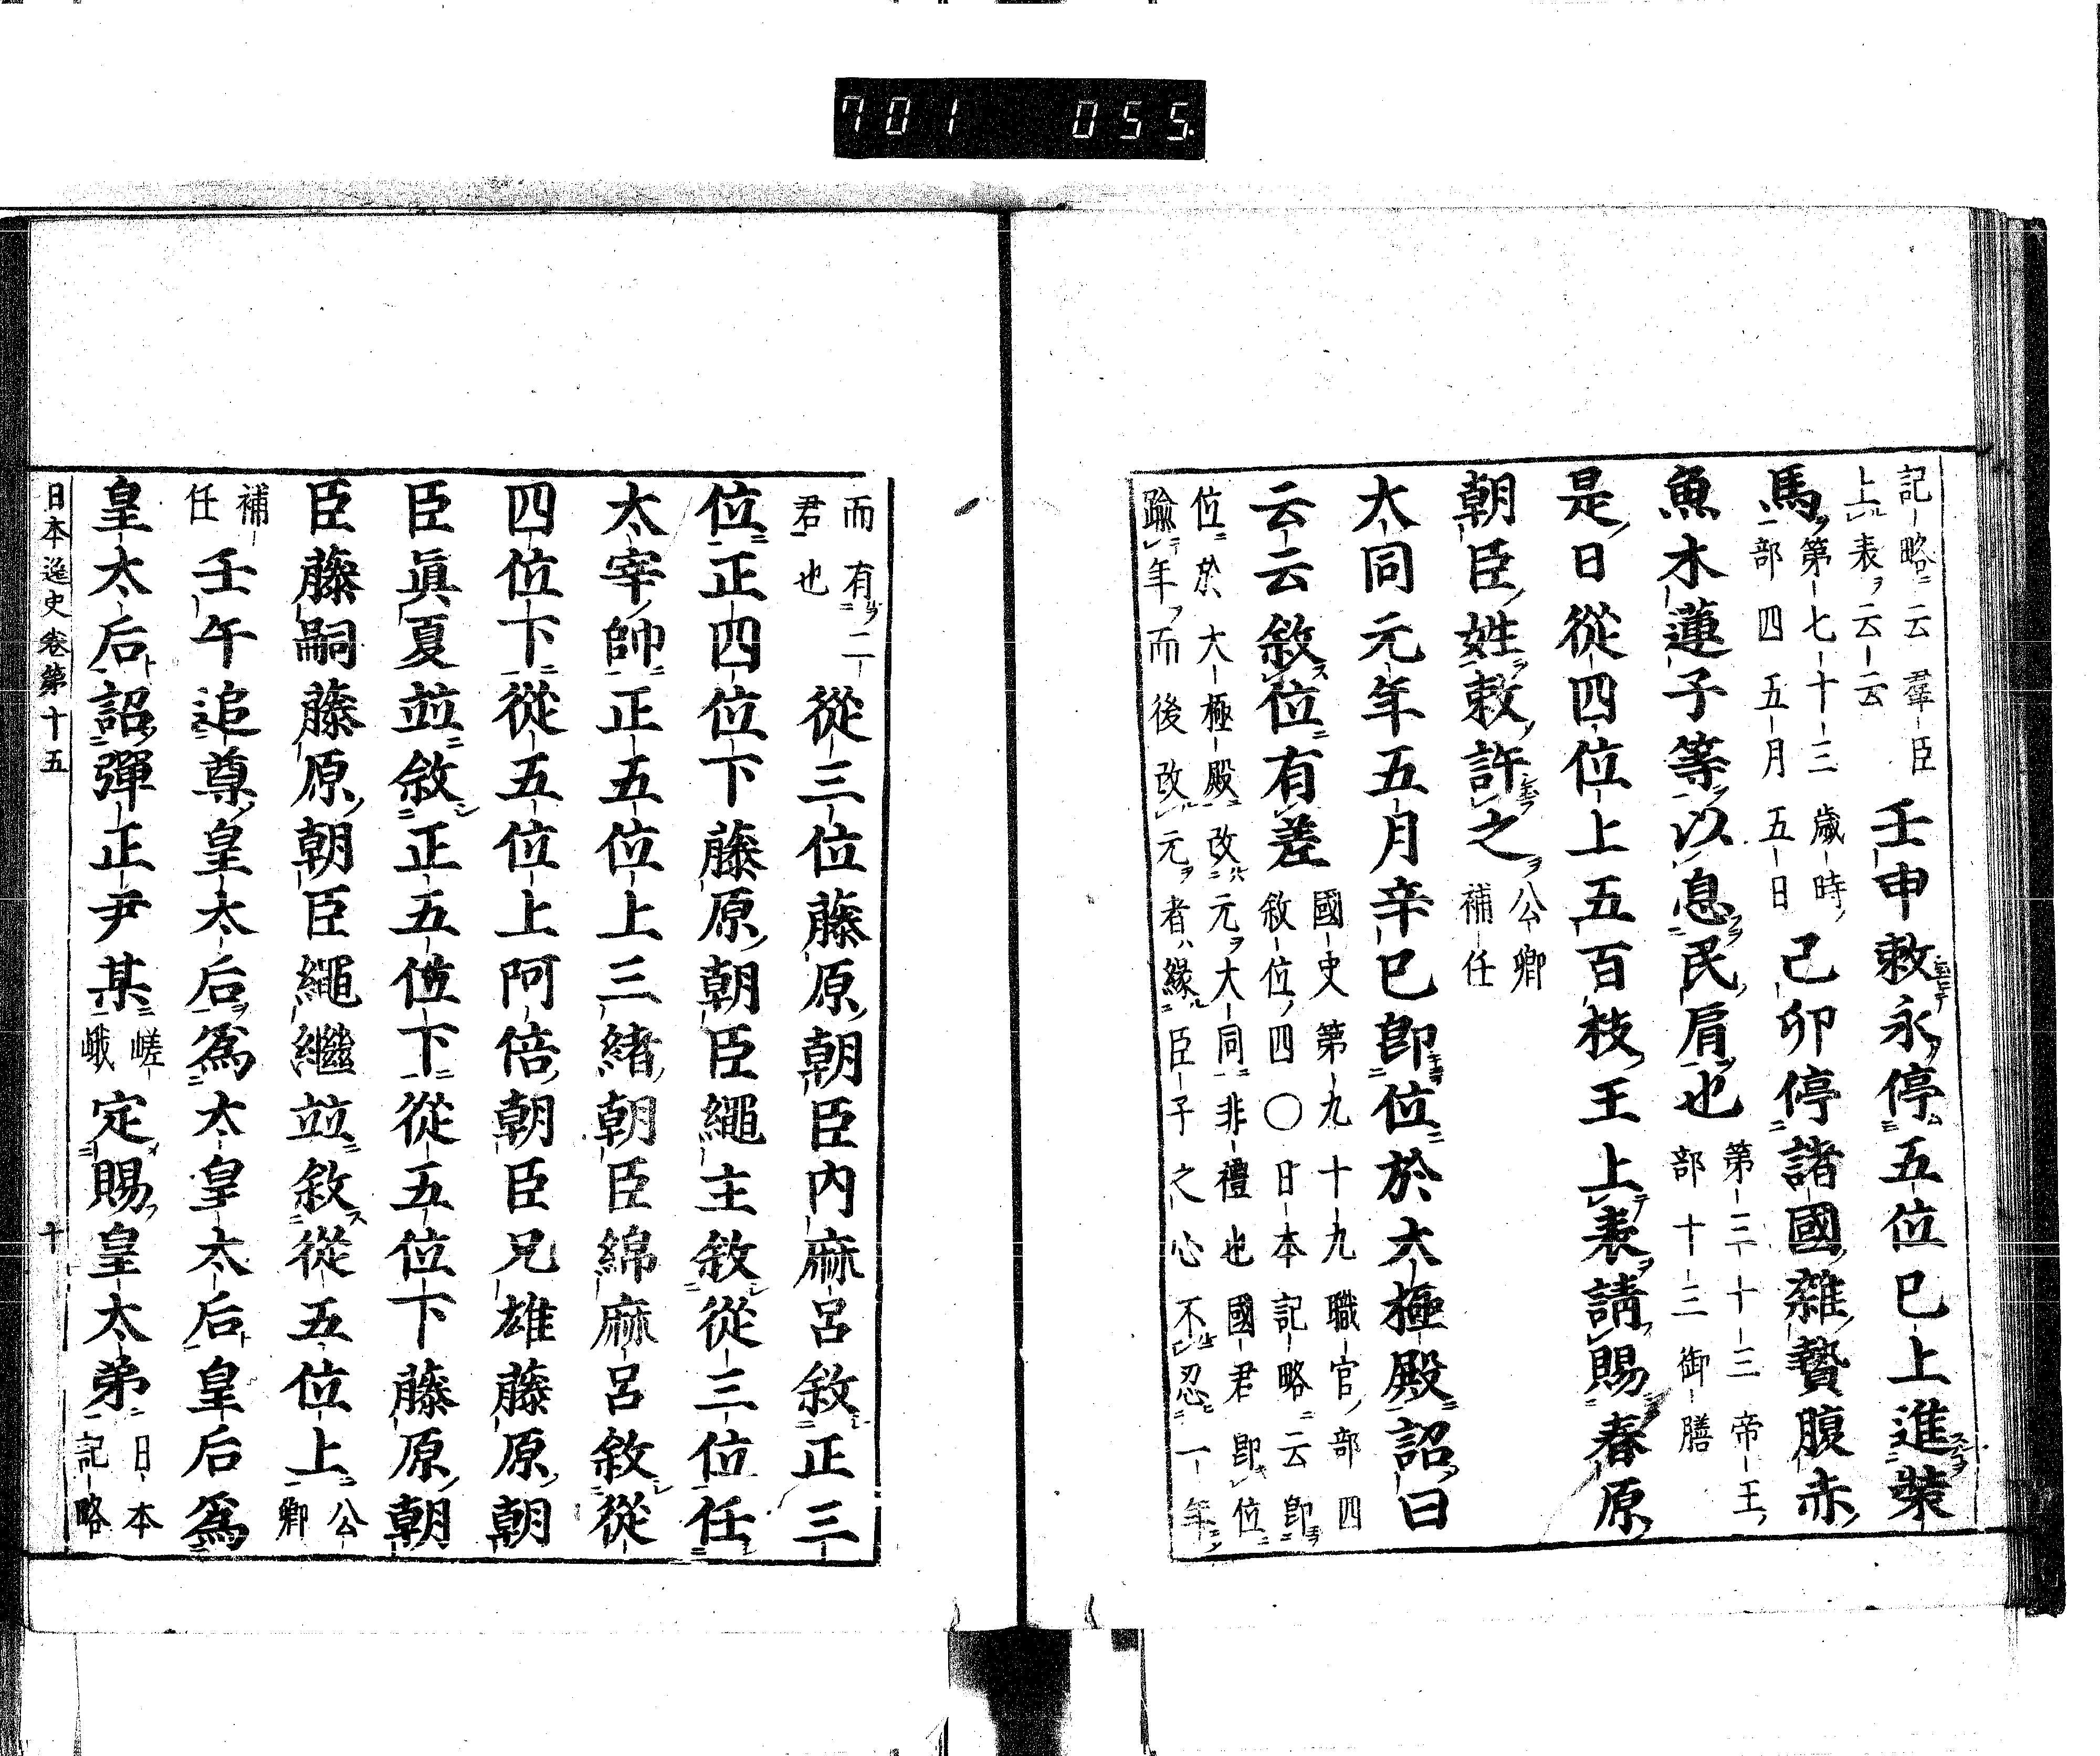 701 055
記略云羣臣
上表云云
壬申敕永停五位已上進裝
馬
第七十三歲時
部四五月五日
己卯停諸國雜贄腹赤
魚木蓮子等以息民肩也
第三十三帝王
部十三御膳
是日從四位上五百枝王上表請賜春原
朝臣姓敕許之
公卿
補任
大同元年五月辛巳即位於大極殿詔曰
云云敘位有差
國史第九十九職官部四
敘位四〇日本記略云即
位於大極殿改元大同非禮也國君即位
踰年而後改元者緣臣子之心不忍一年
而有二
君也
從三位藤原朝臣內麻呂敘正三
位正四位下藤原朝臣繩主敘從三位任
太宰帥正五位上三緒朝臣綿麻呂敘從
四位下從五位上阿倍朝臣兄雄藤原朝
臣眞夏竝敘正五位下從五位下藤原朝
臣藤嗣藤原朝臣繩繼竝敘從五位上
公卿
補任
壬午追尊皇太后爲太皇太后皇后爲
皇太后詔彈正尹某
嵯峨
定賜皇太弟
日本
記略
日本逸史卷第十五 十